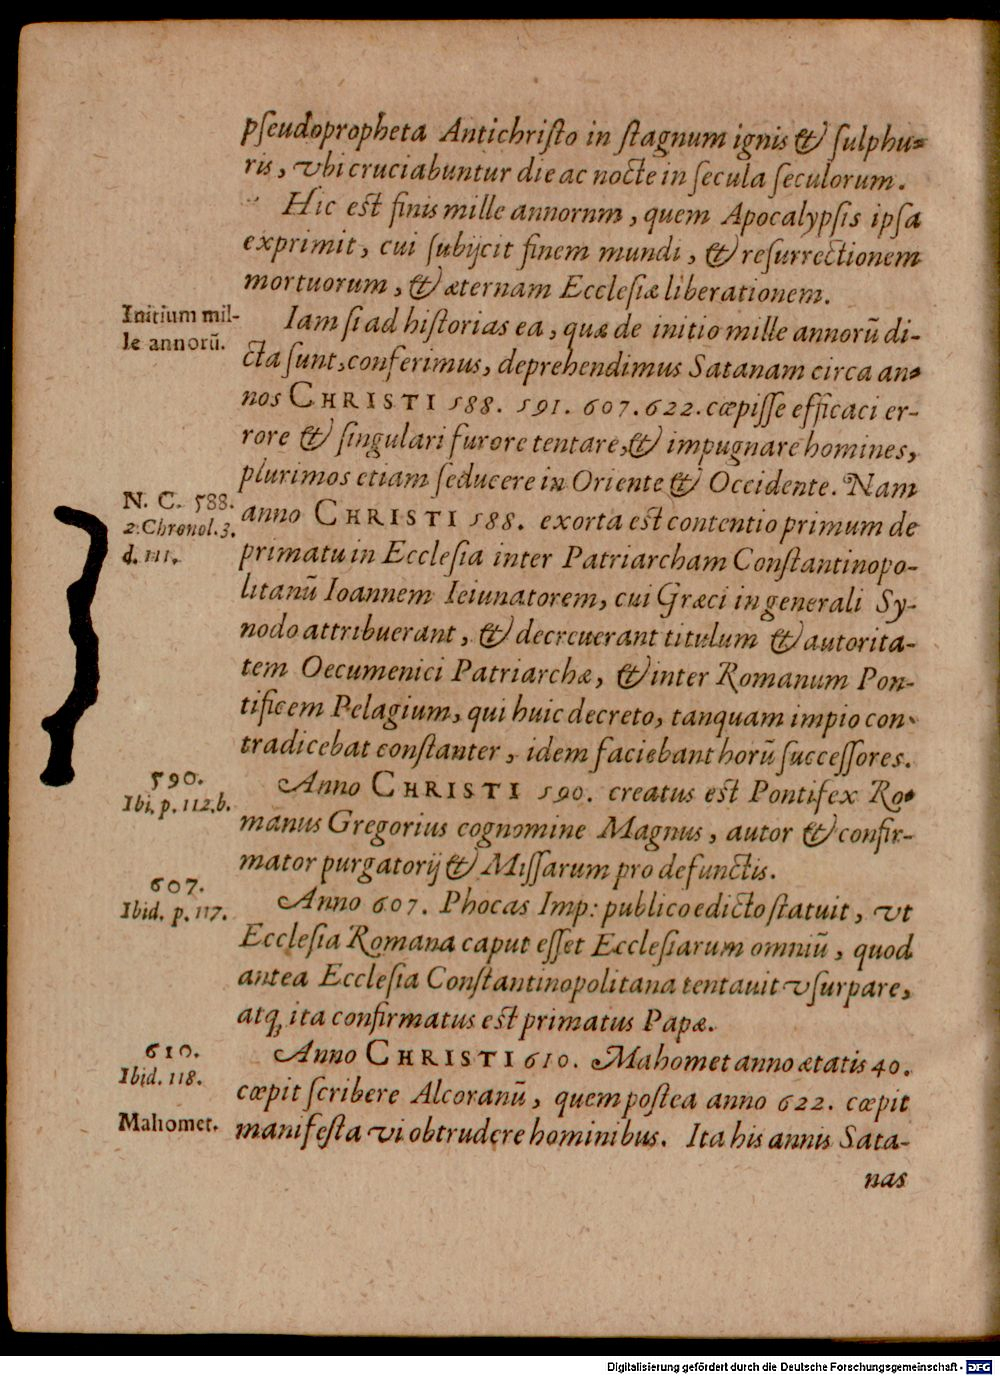 pſeudopropheta Antichriſto in ſtagnum ignis & ſulphu-
ris, vbi cruciabuntur die ac nocte in ſecula ſeculorum.
Hic eſt finis mille annornm, quem Apocalypſis ipſa
exprimit, cui ſubijcit finem mundi, & reſurrectionem
mortuorum, & æternam Eccleſiæ liberationem.
Initium mil-
le annorũ.
Iam ſi ad hiſtorias ea, quæ de initio mille annorũ di-
cta ſunt, conferimus, deprehendimus Satanam circa an-
nos CHRISTI 588. 591. 607. 622. cœpiſſe efficaci er-
rore & ſingulari furore tentare, & impugnare homines,
plurimos etiam ſeducere in Oriente & Occidente. Nam
N. C. 588.
2. Chronol. 3.
d. 111.
anno CHRISTI 588. exorta eſt contentio primum de
primatu in Eccleſia inter Patriarcham Conſtantinopo-
litanũ Ioannem Ieiunatorem, cui Græci in generali Sy-
nodo attribuerant, & decreuerant titulum & autorita-
tem Oecumenici Patriarchæ, & inter Romanum Pon-
tificem Pelagium, qui huic decreto, tanquam impio con-
tradicebat conſtanter, idem faciebant horũ ſucceſſores.
590.
Ibi. p. 112. b.
Anno CHRISTI 590. creatus eſt Pontifex Ro-
manus Gregorius cognomine Magnus, autor & confir-
mator purgatorij & Miſſarum pro defunctis.
607.
Ibid. p. 117.
Anno 607. Phocas Imp: publico edicto ſtatuit, vt
Eccleſia Romana caput eſſet Eccleſiarum omniũ, quod
antea Eccleſia Conſtantinopolitana tentauit vſurpare,
atq; ita confirmatus eſt primatus Papæ.
610.
Ibid. 118.
Mahomet.
Anno CHRISTI 610. Mahomet anno ætatis 40.
cœpit ſcribere Alcoranũ, quem poſtea anno 622. cœpit
manifeſta vi obtrudere hominibus. Ita his annis Sata-
nas
Digitalisierung gefördert durch die Deutsche Forschungsgemeinschaft - DFG